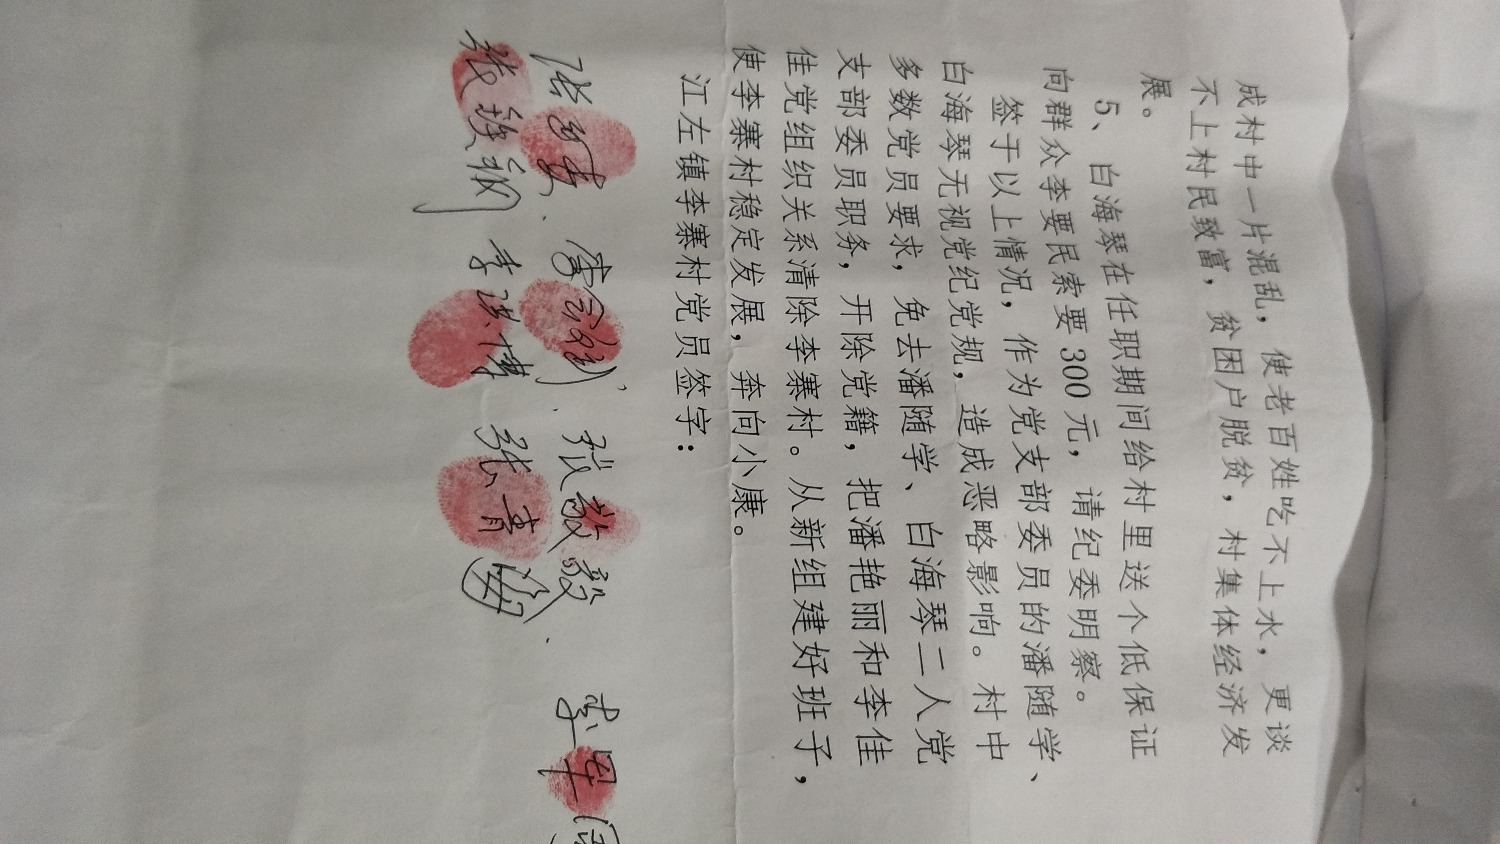 成村中一片混乱，使老百姓吃不上水，更谈
不上村民致富，贫困户脱贫，村集体经济发
展。
5、白海琴在任职期间给村里送个低保证
向群众李要民索要300元，请纪委明察。
签于以上情况，作为党支部委员的潘随学、
白海琴无视党纪党规，造成恶略影响。村中
多数党员要求，免去潘随学、白海琴二人党
支部委员职务，开除党籍，把潘艳丽和李佳
佳党组织关系清除李寨村。从新组建好班子，
使李寨村稳定发展，奔向小康。
江左镇李寨村党员签字：
张敬
李洪涛 张青